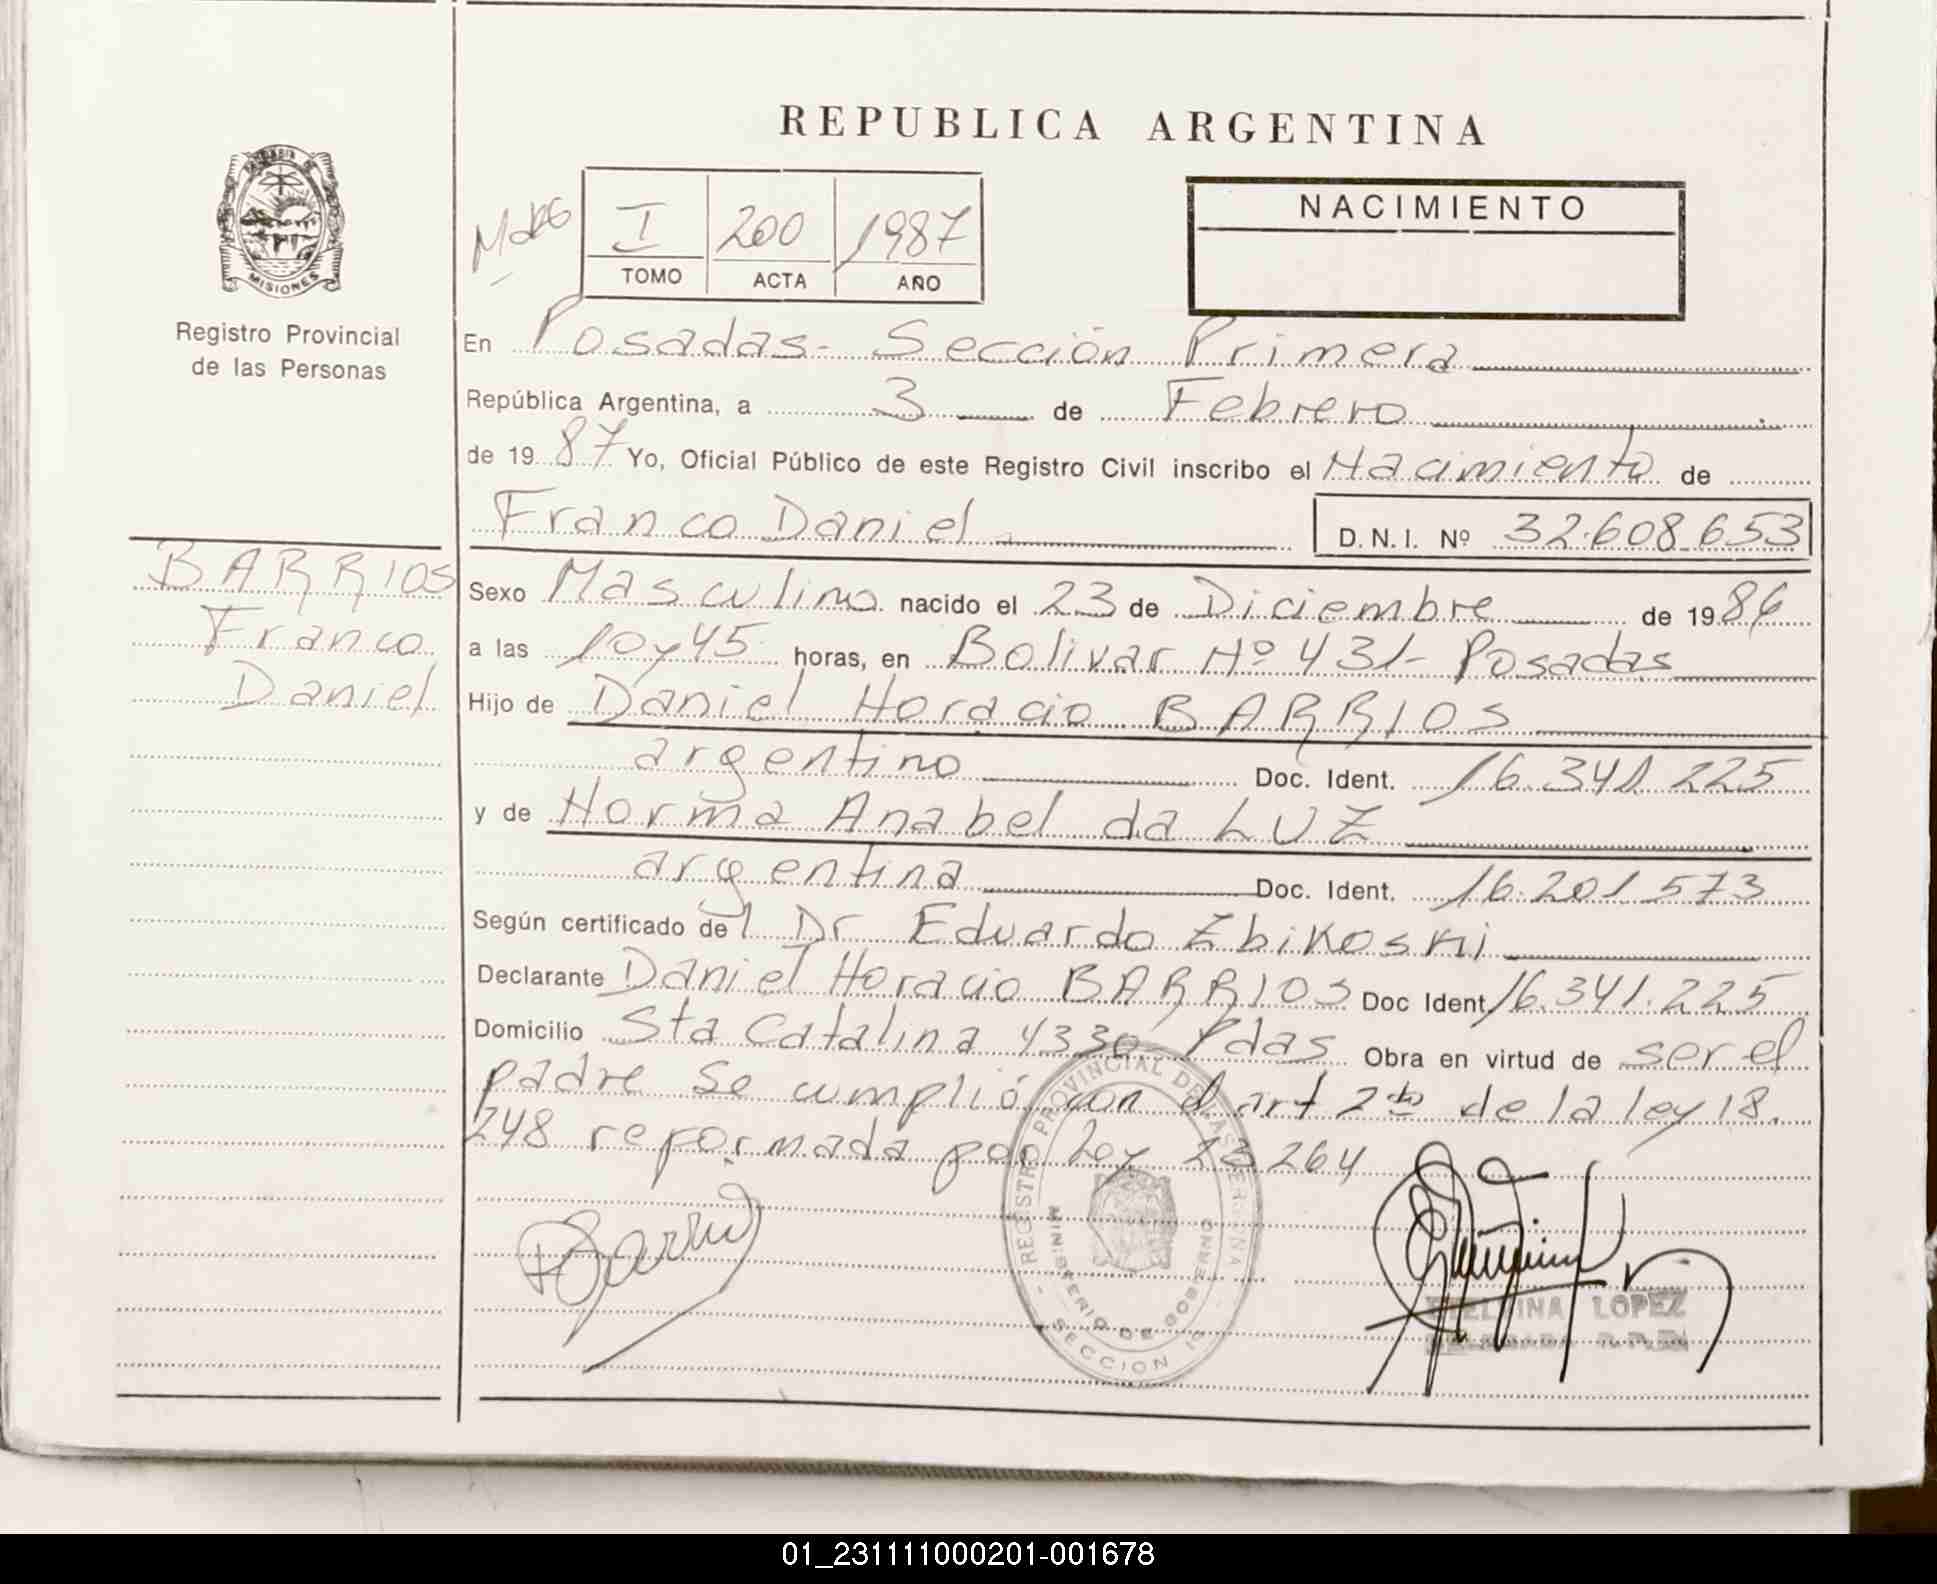 REPUBLICA ARGENTINA
PROVINCIA DE
MISIONES
Registro Provincial
de las Personas
I 200 1987
TOMO ACTA AÑO
NACIMIENTO
En Posadas - Sección Primera
República Argentina, a 3 de Febrero
de 1987 Yo, Oficial Público de este Registro Civil inscribo el Nacimiento de
Franco Daniel
D.N.I. Nº 32.608.653
BARRIOS
Franco
Daniel
Sexo Masculino nacido el 23 de Diciembre de 1986
a las 10 y 45 horas, en Bolivar Nº 431- Posadas
Hijo de Daniel Horacio BARRIOS
argentino Doc. Ident. 16.341.225
y de Norma Anabel da LUZ
argentina Doc. Ident. 16.201.573
Según certificado del Dr Eduardo Zbikoski
Declarante Daniel Horacio BARRIOS Doc Ident 16.341.225
Domicilio Sta Catalina 4330 Pdas Obra en virtud de ser el
padre se cumplió con el art 2do de la ley 18.
248 reformada por Ley 23264
REGISTRO PROVINCIAL DE LAS PERSONAS
MINISTERIO DE GOBIERNO
SECCION 1a
LOPEZ
01_231111000201-001678